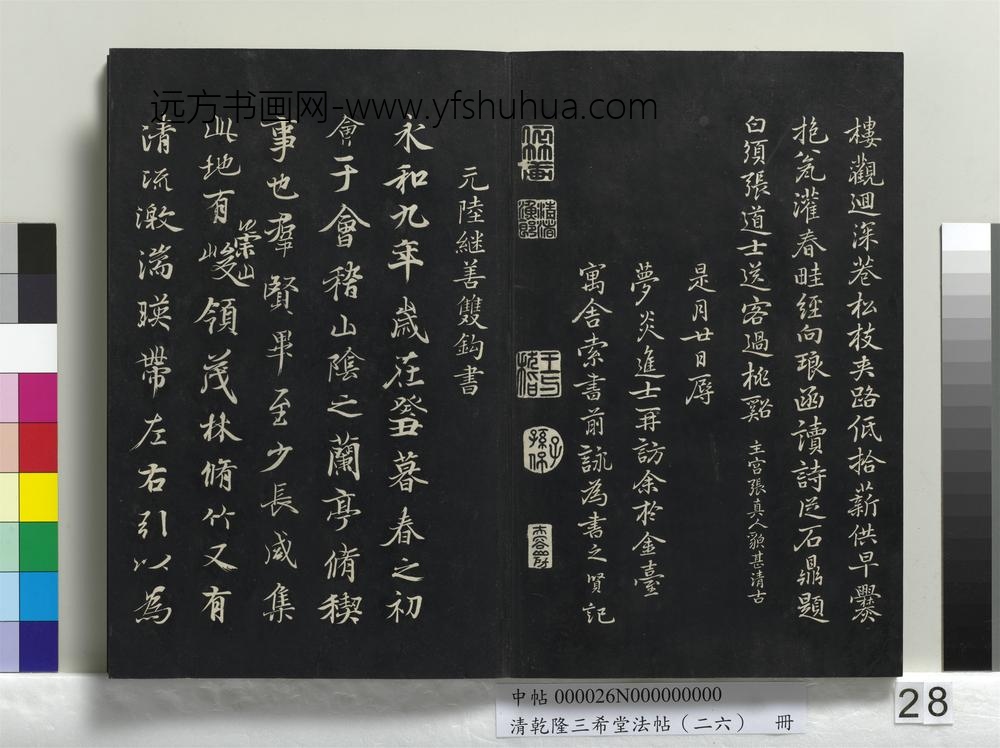 远方书画网-www.yfshuhua.com
樓觀迴深巷松枝夾路低拾薪供早爨
抱瓮灌春畦經向琅函讀詩從石鼎題
白須張道士送客過桃谿 主宫張真人貌甚清古
是月廿日辱
夢炎進士再訪余於金臺
寓舍索書前詠為書之賢記
元陸継善雙鈎書
永和九年歲在癸丑暮春之初
會于會稽山陰之蘭亭脩稧
事也羣賢畢至少長咸集
此地有崇山峻領茂林脩竹又有
清流激湍暎帶左右引以為
中帖 000026N000000000
清乾隆三希堂法帖（二六） 冊
28